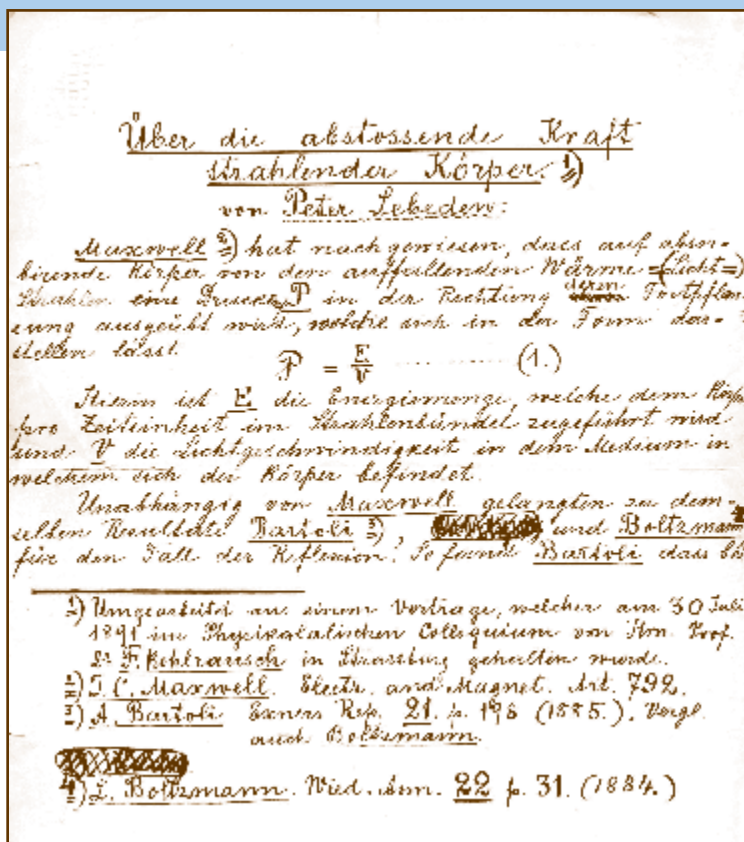 Über die abstossende Kraft
strahlender Körper. 1)
von Peter Lebedew:
Maxwell 2) hat nachgewiesen, dass auf absor-
birende Körper von den auffallenden Wärme=(Licht=)
Strahlen eine Druck P in der Richtung deren Fortpflan
zung ausgeübt wird, welche sich in der Form dar-
stellen lässt
P = E/V ........ (1.)
Hierin ist E die Energiemenge, welche dem Körpe
pro Zeiteinheit im Strahlenbündel zugeführt wird
und V die Lichtgeschwindigkeit in dem Medium in
welchem sich der Körper befindet.
Unabhängig von Maxwell gelangten zu dem-
selben Resultate Bartoli 3), und Boltzmann
für den Fall der Reflexion. So fand Bartoli dass
1) Umgearbeitet an einem Vortrage, welcher am 30 Juli
1891 im Physikalalischen Colloquium von Hrn. Prof.
Dr F. Kohlrausch in Strassburg gehalten wurde.
2) J. C. Maxwell. Electr. and Magnet. Art. 792.
3) A. Bartoli Exners Rep. 21. p. 198 (1885.). Vergl.
auch Boltzmann.
4) L. Boltzmann. Wied. Ann. 22 p. 31. (1884.)